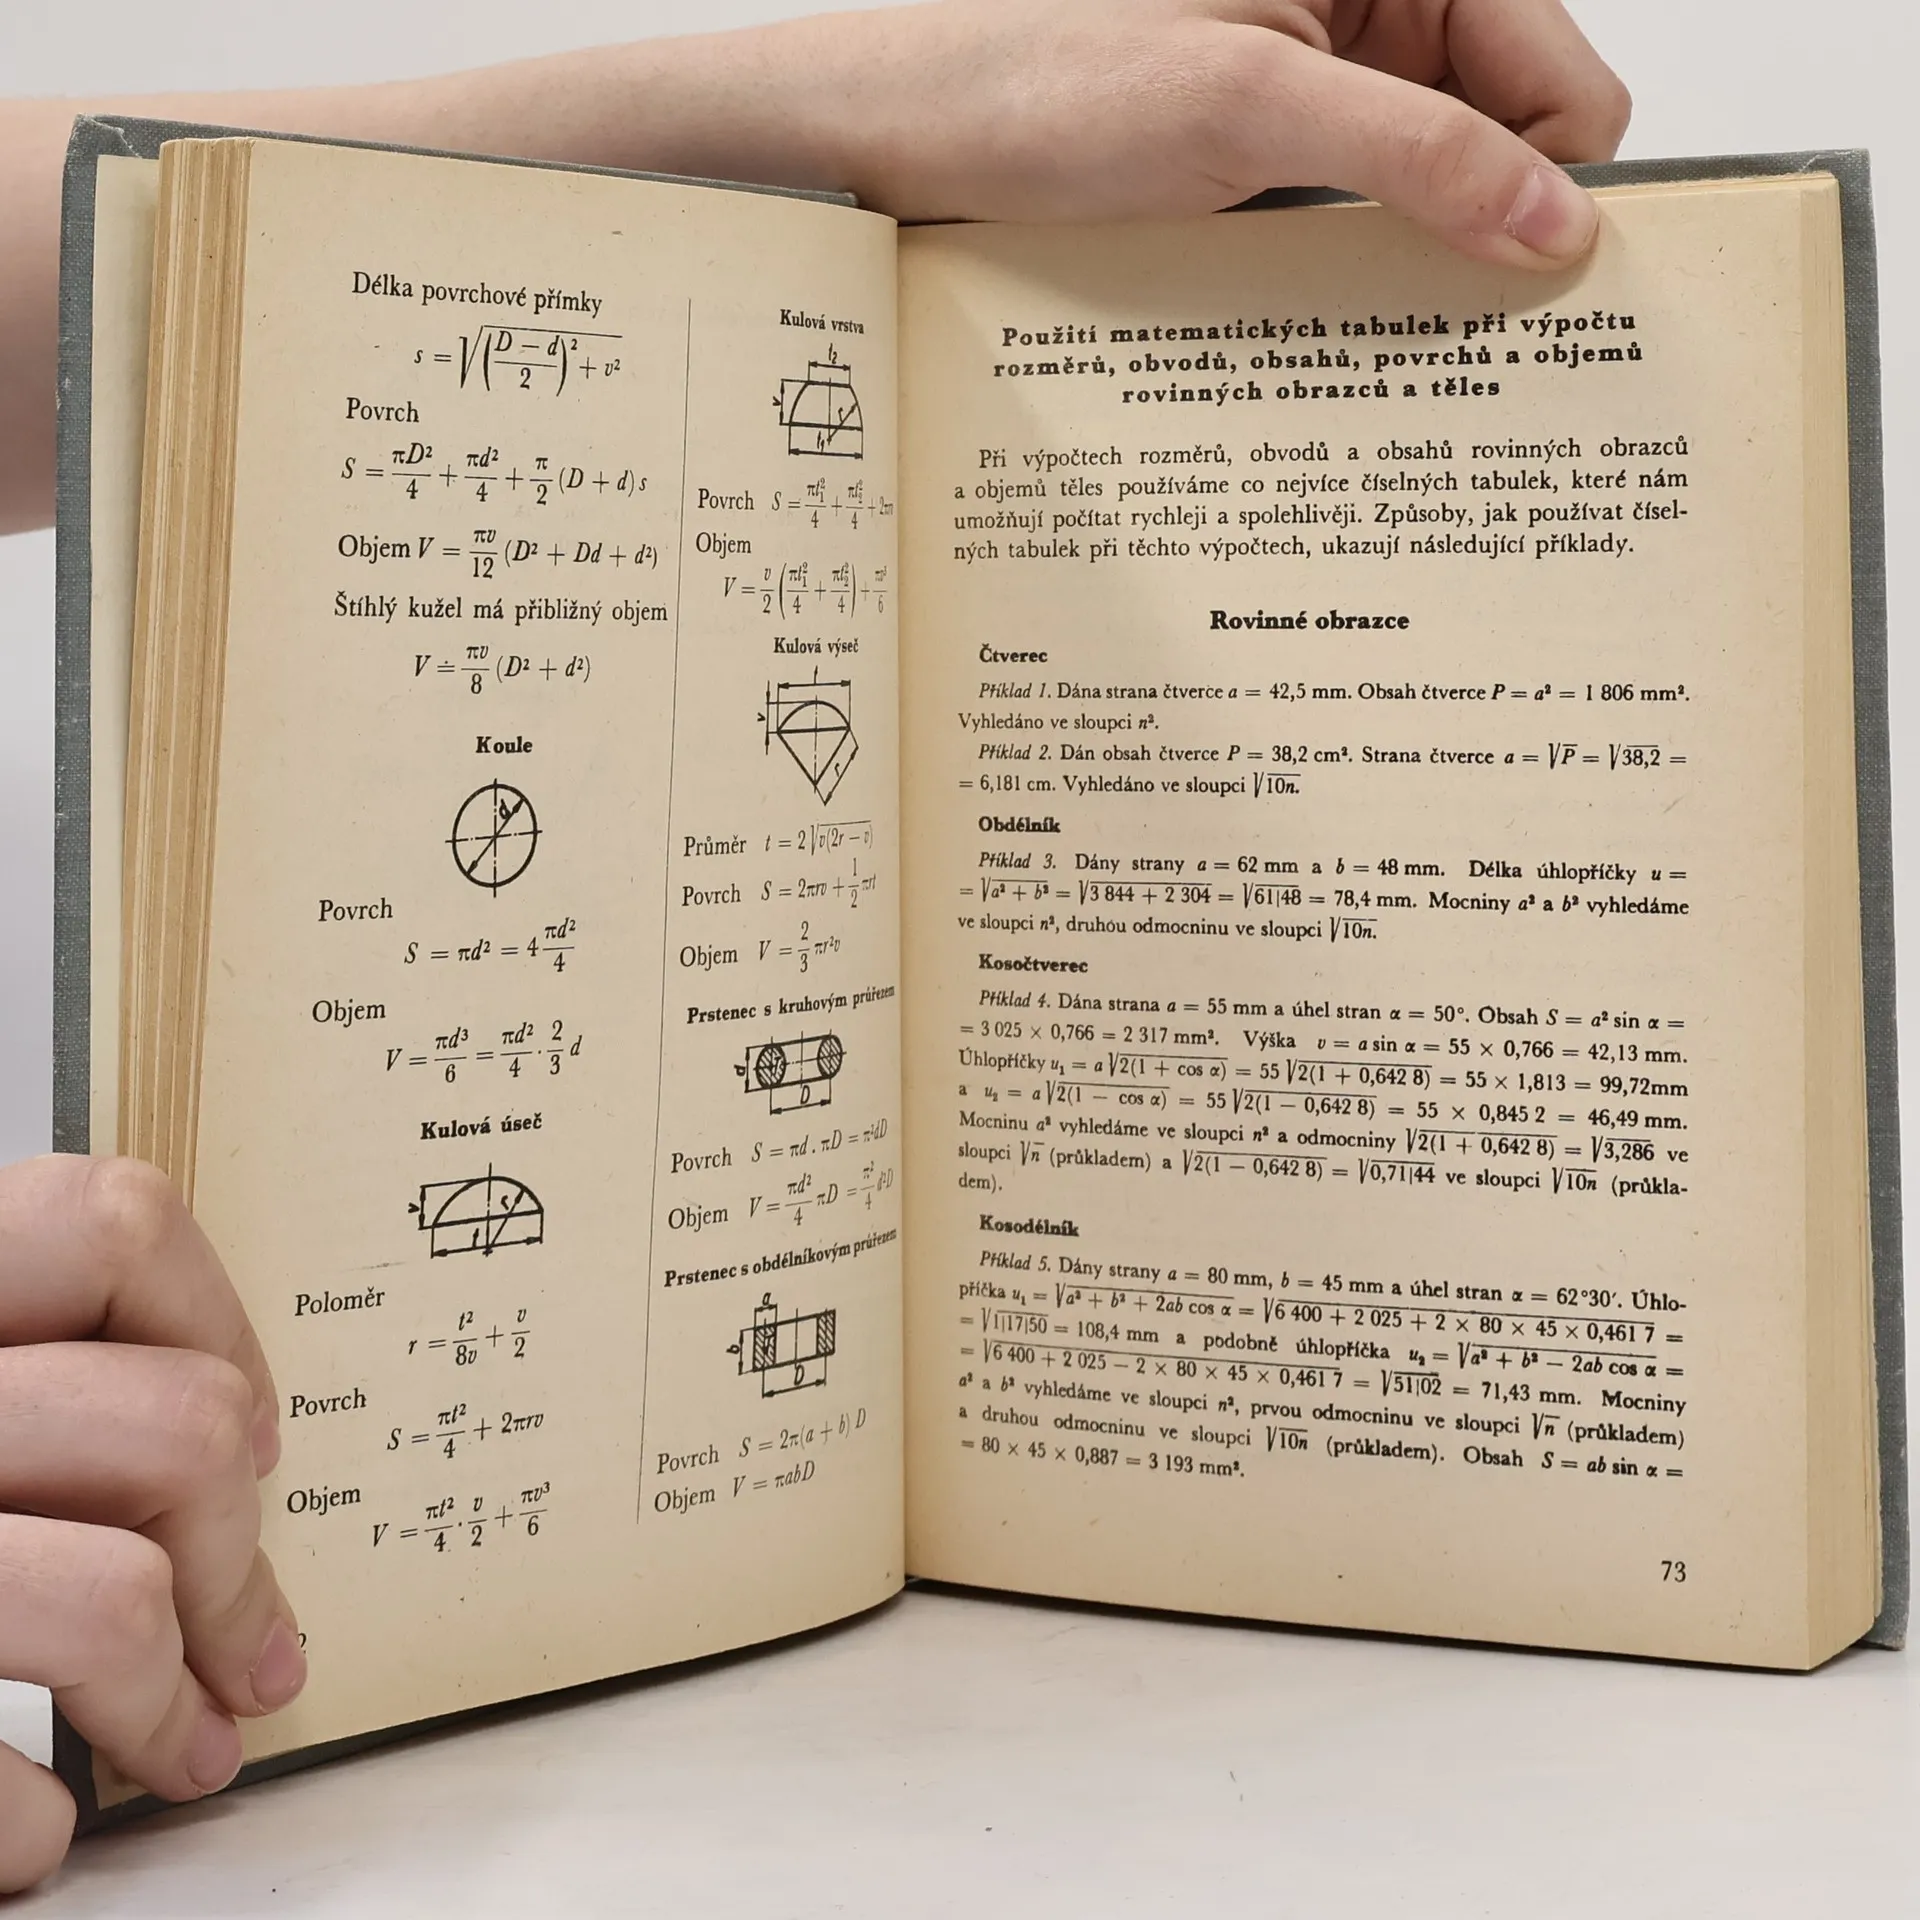 Délka povrchové přímky
s = √((D − d)/2)² + v²
Povrch
S = πD²/4 + πd²/4 + π/2 (D + d) s
Objem V = πv/12 (D² + Dd + d²)
Štíhlý kužel má přibližný objem
V ≐ πv/8 (D² + d²)
Koule
d
Povrch
S = πd² = 4 πd²/4
Objem
V = πd³/6 = πd²/4 · 2/3 d
Kulová úseč
v r
t
Poloměr
r = t²/8v + v/2
Povrch
S = πt²/4 + 2πrv
Objem
V = πt²/4 · v/2 + πv³/6
2
Kulová vrstva
t₂
v r
t₁
Povrch S = πt₁²/4 + πt₂²/4 +
Objem
V = v/2 (πt₁²/4 + πt₂²/4) + πv³/6
Kulová výseč
t
v
r
Průměr t = 2 √v(2r − v)
Povrch S = 2πrv + 1/2 πrt
Objem V = 2/3 πr²v
Prstenec s kruhovým průřezem
d
D
Povrch S = πd . πD = π²dD
Objem V = πd²/4 πD = π²/4 d²D
Prstenec s obdélníkovým průřezem
a
b
D
Povrch S = 2π(a + b) D
Objem V = πabD
Použití matematických tabulek při výpočtu
rozměrů, obvodů, obsahů, povrchů a objemů
rovinných obrazců a těles
Při výpočtech rozměrů, obvodů a obsahů rovinných obrazců
a objemů těles používáme co nejvíce číselných tabulek, které nám
umožňují počítat rychleji a spolehlivěji. Způsoby, jak používat čísel-
ných tabulek při těchto výpočtech, ukazují následující příklady.
Rovinné obrazce
Čtverec
Příklad 1. Dána strana čtverce a = 42,5 mm. Obsah čtverce P = a² = 1 806 mm².
Vyhledáno ve sloupci n².
Příklad 2. Dán obsah čtverce P = 38,2 cm². Strana čtverce a = √P = √38,2 =
= 6,181 cm. Vyhledáno ve sloupci √10n.
Obdélník
Příklad 3. Dány strany a = 62 mm a b = 48 mm. Délka úhlopříčky u =
= √a² + b² = √3 844 + 2 304 = √61|48 = 78,4 mm. Mocniny a² a b² vyhledáme
ve sloupci n², druhou odmocninu ve sloupci √10n.
Kosočtverec
Příklad 4. Dána strana a = 55 mm a úhel stran α = 50°. Obsah S = a² sin α =
= 3 025 × 0,766 = 2 317 mm². Výška v = a sin α = 55 × 0,766 = 42,13 mm.
Úhlopříčky u₁ = a √2(1 + cos α) = 55 √2(1 + 0,642 8) = 55 × 1,813 = 99,72mm
a u₂ = a √2(1 − cos α) = 55 √2(1 − 0,642 8) = 55 × 0,845 2 = 46,49 mm.
Mocninu a² vyhledáme ve sloupci n² a odmocniny √2(1 + 0,642 8) = √3,286 ve
sloupci √n (průkladem) a √2(1 − 0,642 8) = √0,71|44 ve sloupci √10n (průkla-
dem).
Kosodélník
Příklad 5. Dány strany a = 80 mm, b = 45 mm a úhel stran α = 62°30′. Úhlo-
příčka u₁ = √a² + b² + 2ab cos α = √6 400 + 2 025 + 2 × 80 × 45 × 0,461 7 =
= √1|17|50 = 108,4 mm a podobně úhlopříčka u₂ = √a² + b² − 2ab cos α =
= √6 400 + 2 025 − 2 × 80 × 45 × 0,461 7 = √51|02 = 71,43 mm. Mocniny
a² a b² vyhledáme ve sloupci n², prvou odmocninu ve sloupci √n (průkladem)
a druhou odmocninu ve sloupci √10n (průkladem). Obsah S = ab sin α =
= 80 × 45 × 0,887 = 3 193 mm².
73